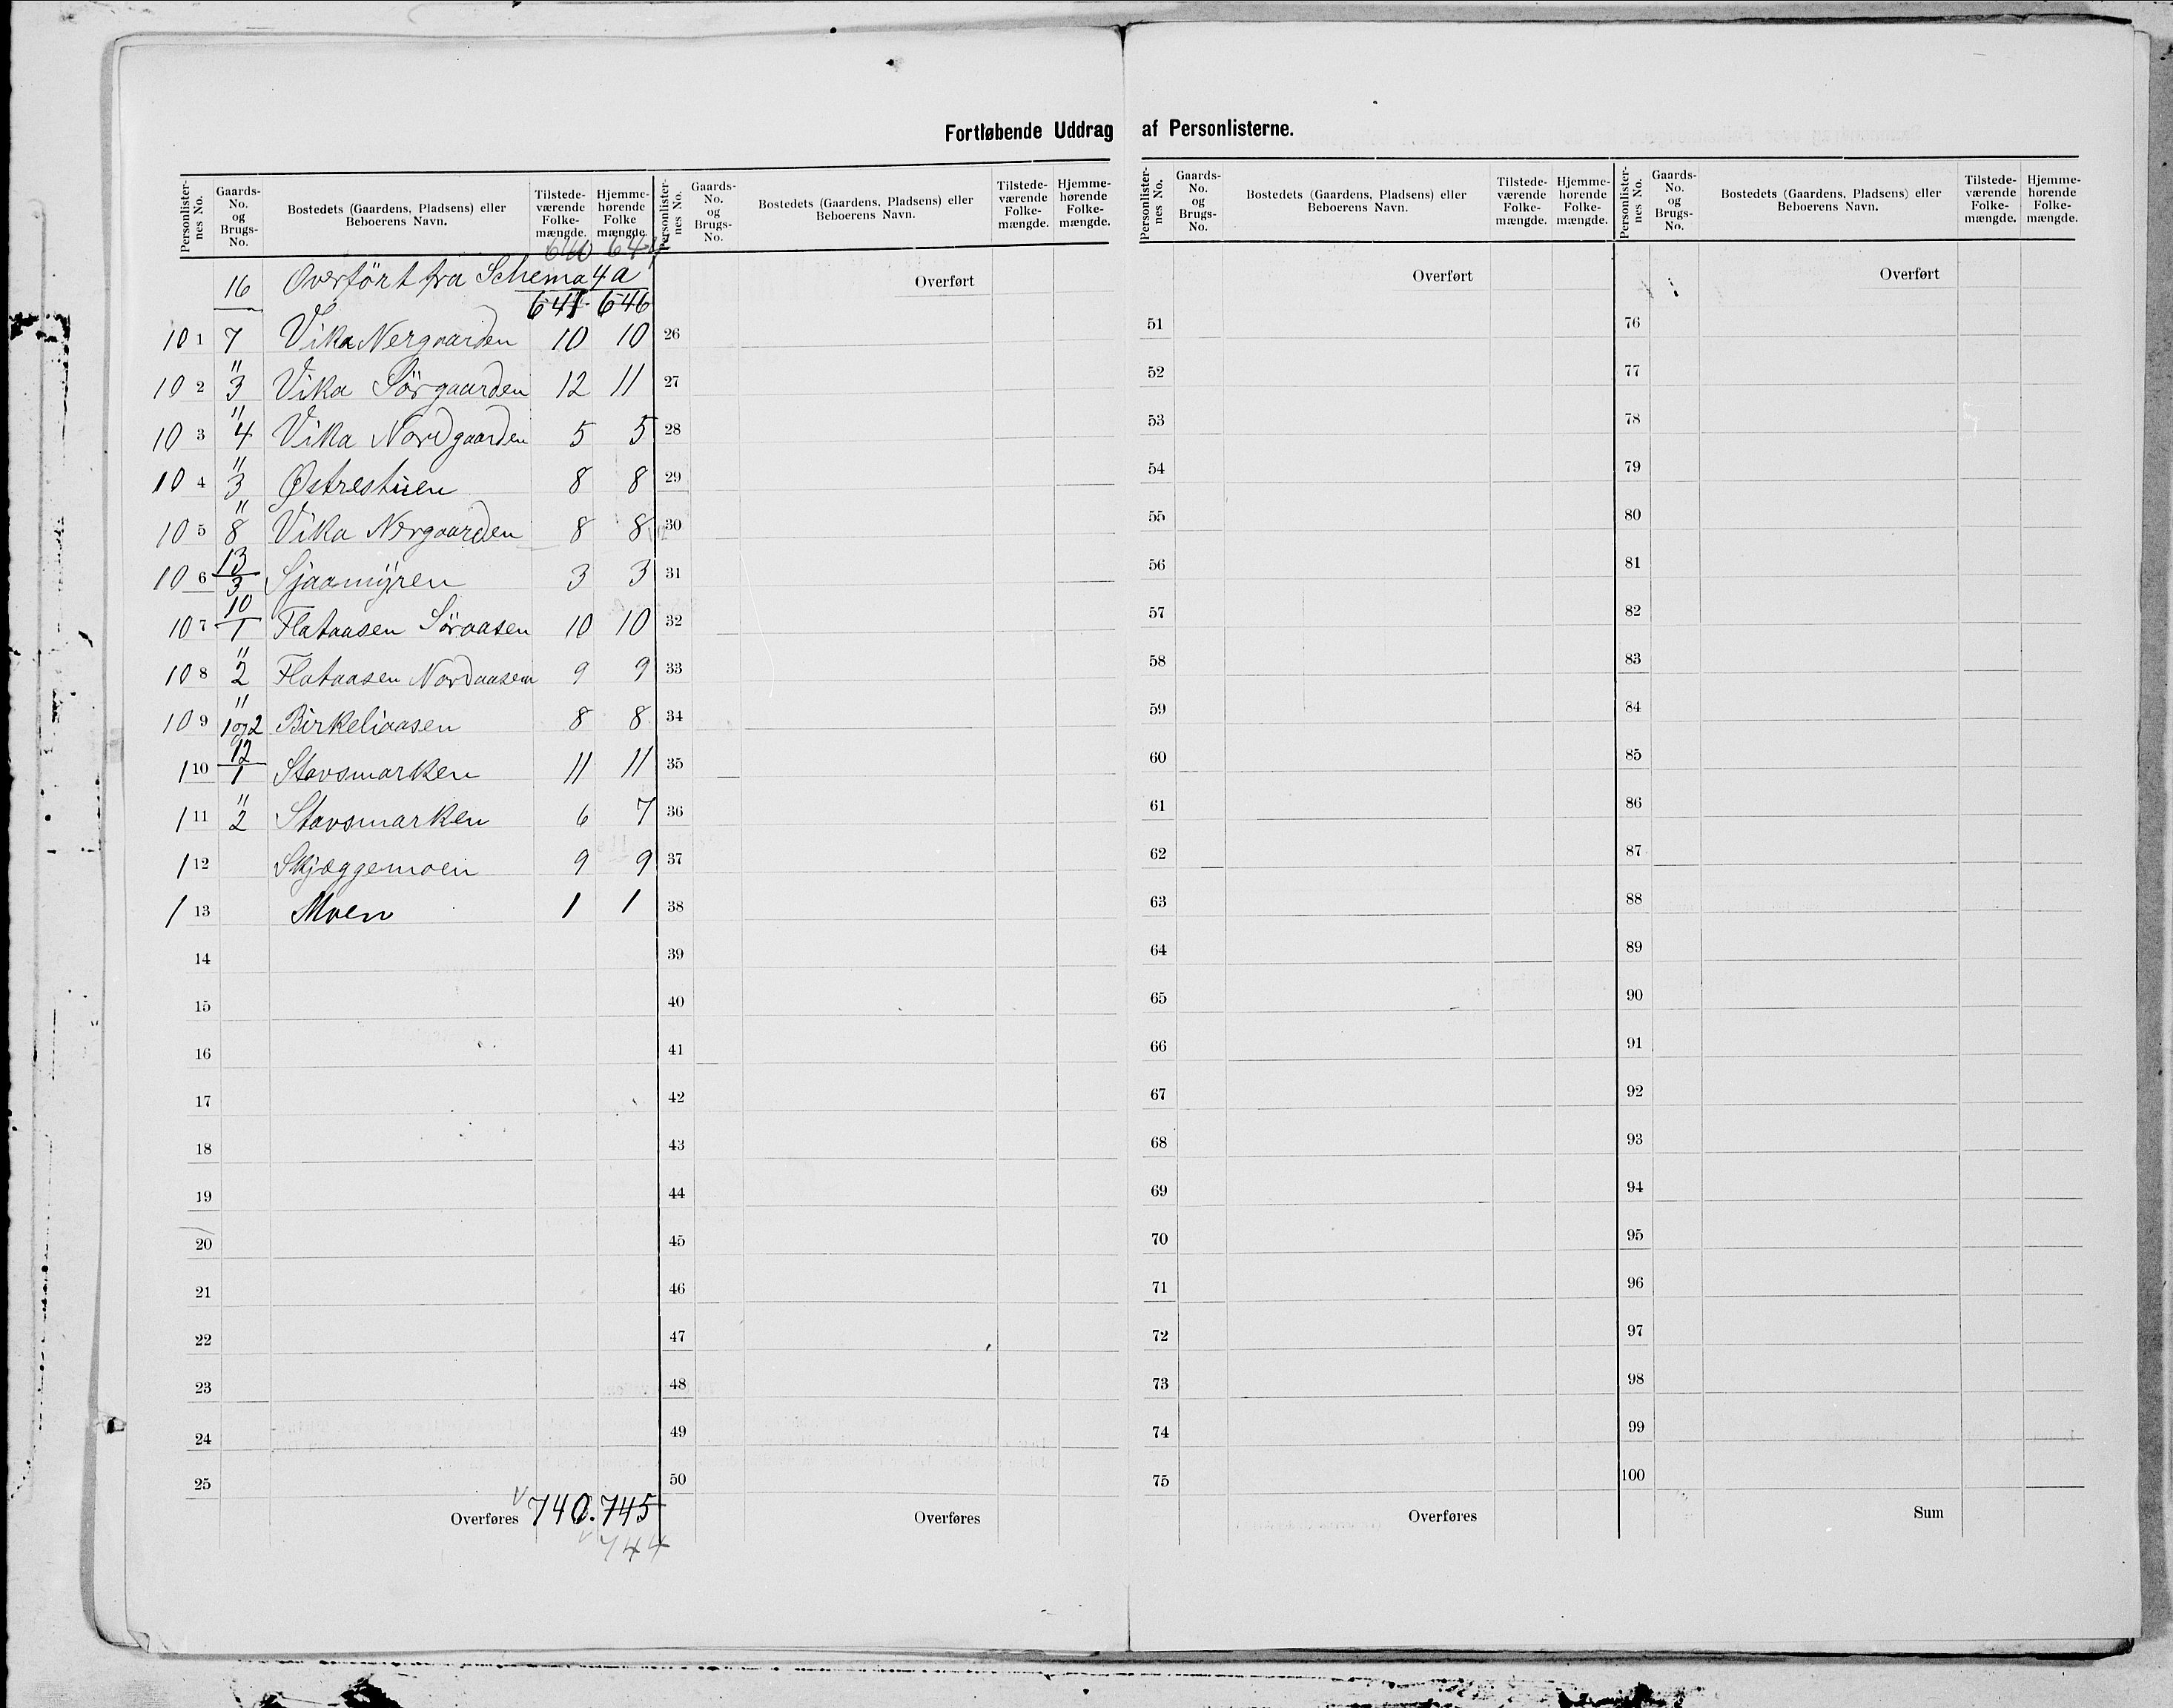 Fortløbende Uddrag af Personlisterne.
Personlisternes No. | Gaards-No. og Brugs-No. | Bostedets (Gaardens, Pladsens) eller Beboerens Navn. | Tilstedeværende Folkemængde. | Hjemmehørende Folke mængde.
640
16 Overført fra Schema 4a
641 646
10 1 7 Vika Nergaarden 10 10
10 2 " 3 Vika Sörgaarden 12 11
10 3 " 4 Vika Nordgaarden 5 5
10 4 " 3 Østrestuen 8 8
10 5 " 8 Vika Nergaarden 8 8
10 6 13/3 Sjaamyren 3 3
10 7 10/1 Flataasen Söraasen 10 10
10 8 " 2 Flataasen Nordaasen 9 9
10 9 " 1 og 2 Birkeliaasen 8 8
1 10 12/1 Stavsmarken 11 11
1 11 " 2 Stavsmarken 6 7
1 12 Skjæggemoen 9 9
1 13 Moen 1 1
14
15
16
17
18
19
20
21
22
23
24
25
Overføres 740. 745
744
Personlisternes No. | Gaards-No. og Brugs-No. | Bostedets (Gaardens, Pladsens) eller Beboerens Navn. | Tilstedeværende Folkemængde. | Hjemmehørende Folkemængde.
Overført
26
27
28
29
30
31
32
33
34
35
36
37
38
39
40
41
42
43
44
45
46
47
48
49
50
Overføres
Personlisternes No. | Gaards-No. og Brugs-No. | Bostedets (Gaardens, Pladsens) eller Beboerens Navn. | Tilstedeværende Folkemængde. | Hjemmehørende Folkemængde.
Overført
51
52
53
54
55
56
57
58
59
60
61
62
63
64
65
66
67
68
69
70
71
72
73
74
75
Overføres
Personlisternes No. | Gaards-No. og Brugs-No. | Bostedets (Gaardens, Pladsens) eller Beboerens Navn. | Tilstedeværende Folkemængde. | Hjemmehørende Folkemængde.
Overført
76
77
78
79
80
81
82
83
84
85
86
87
88
89
90
91
92
93
94
95
96
97
98
99
100
Sum